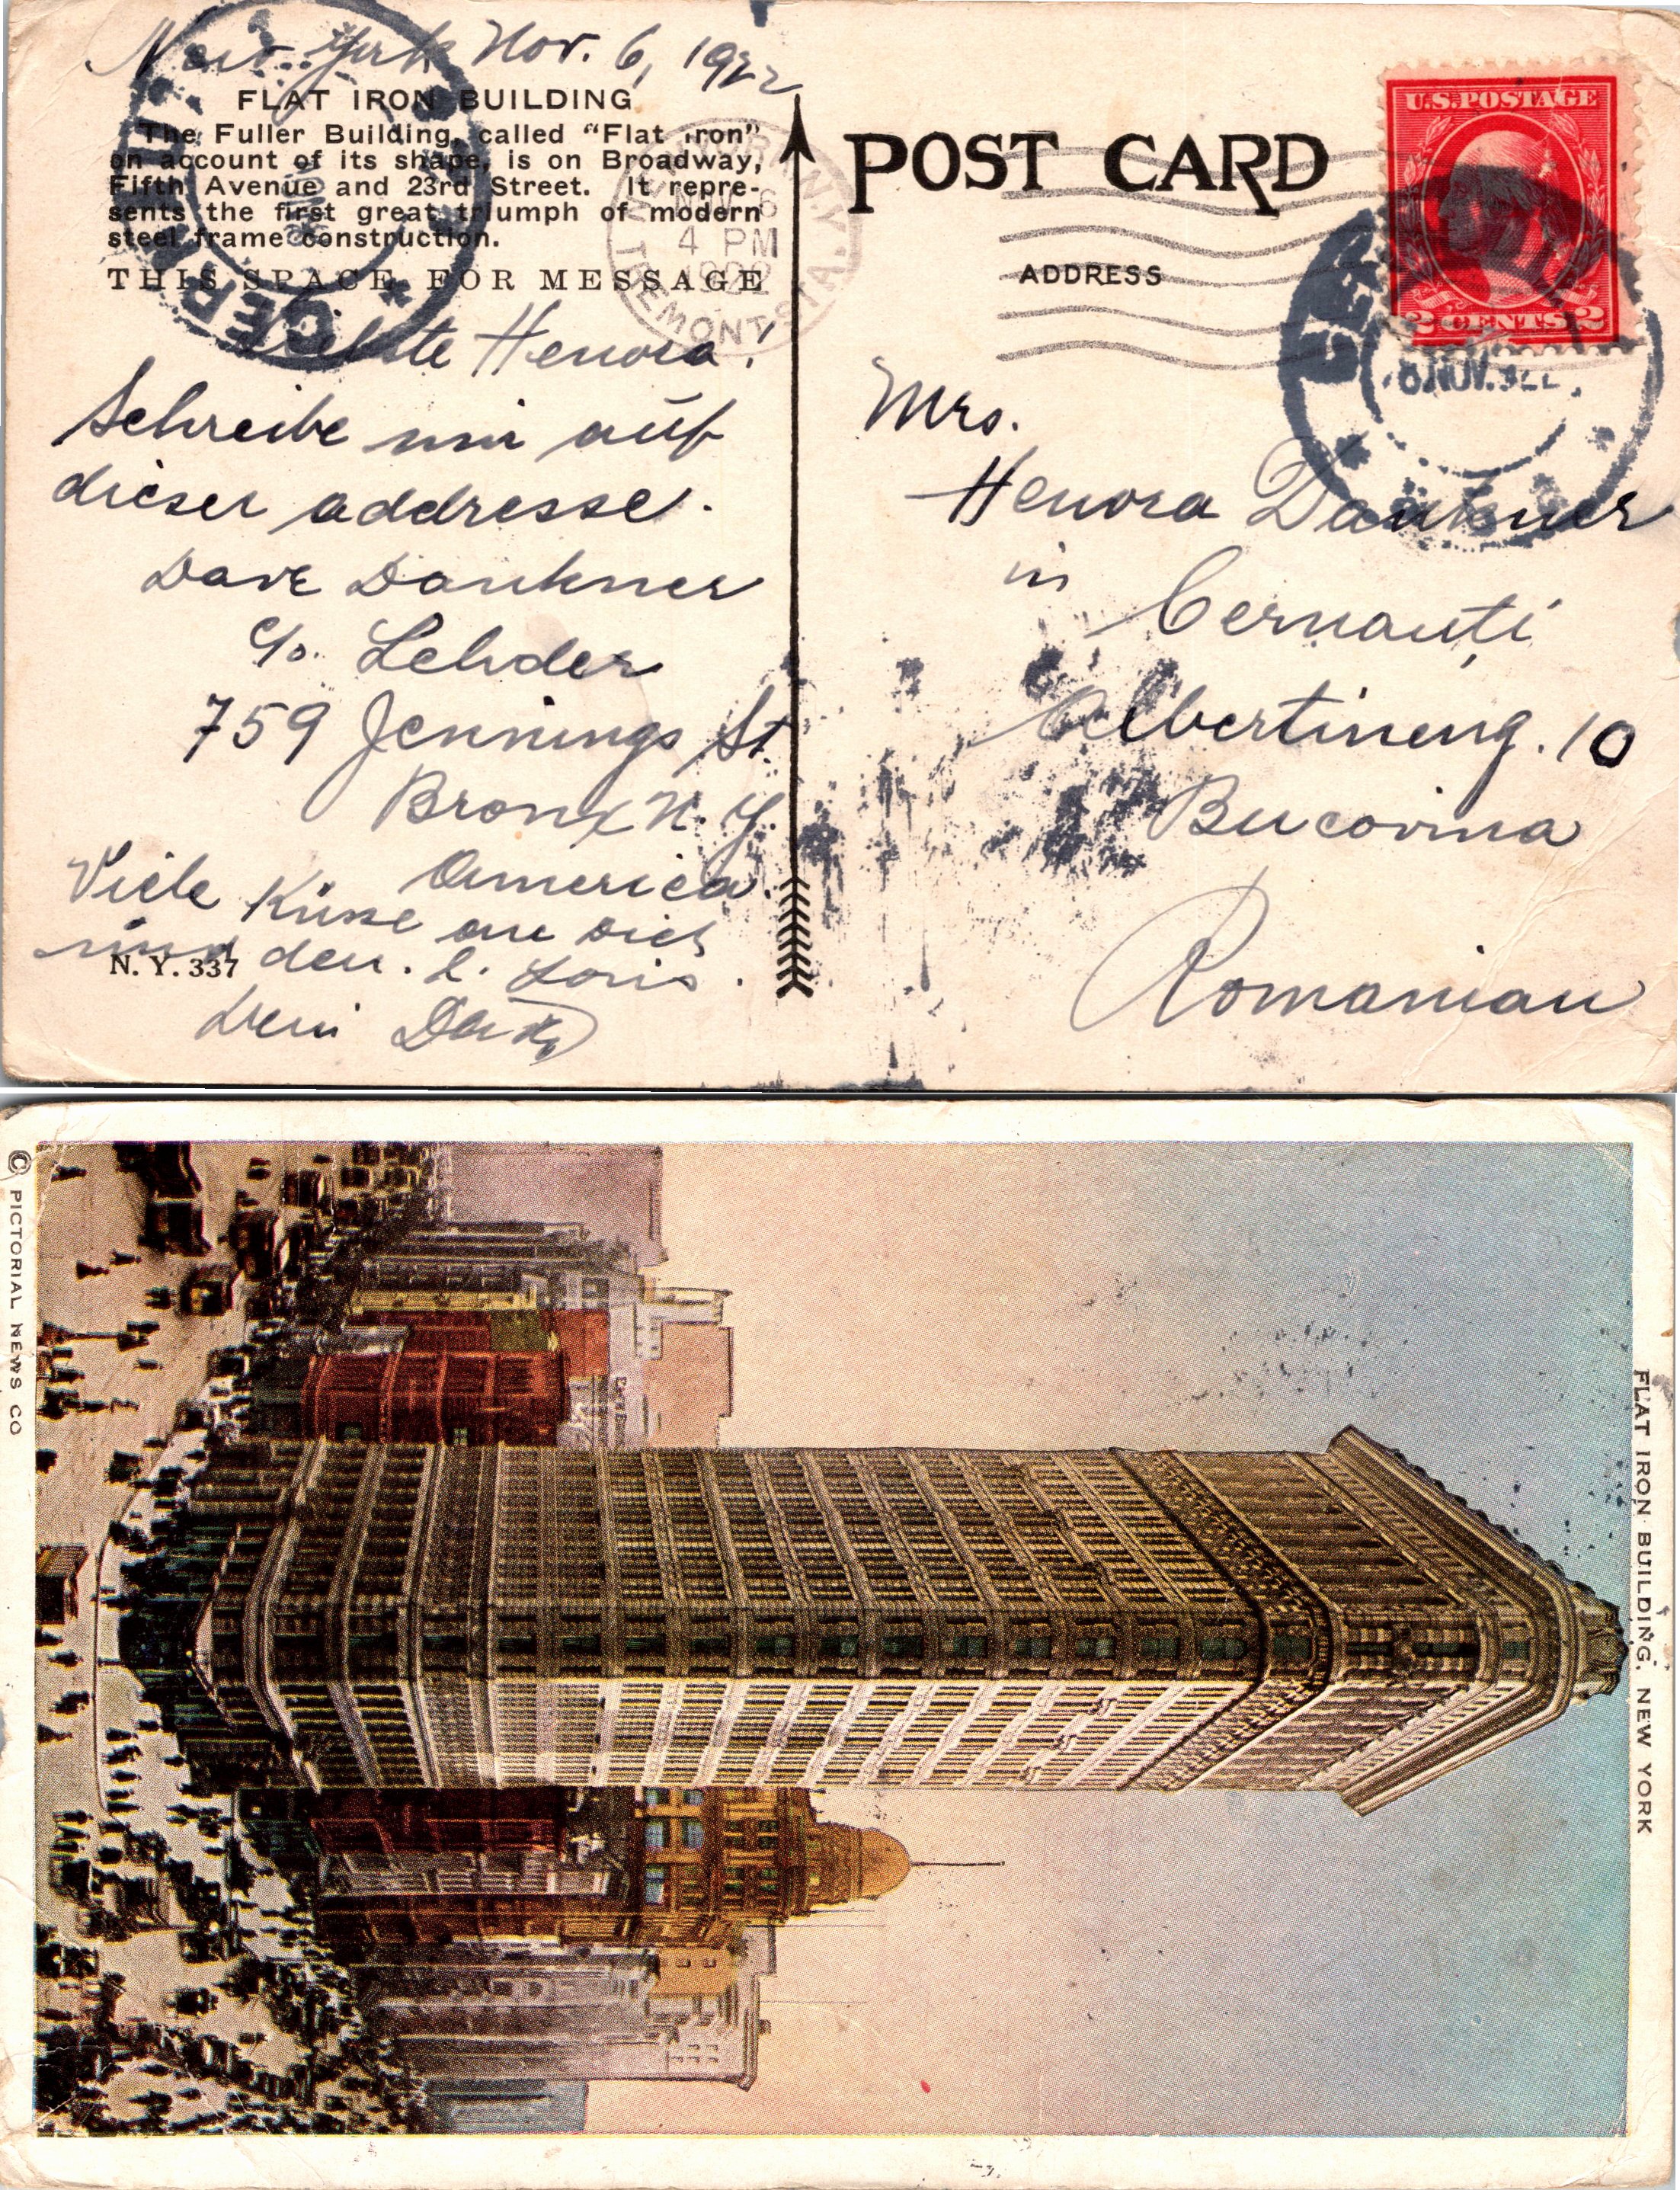 New York Nov. 6, 1922
FLAT IRON BUILDING
The Fuller Building, called "Flat Iron"
on account of its shape, is on Broadway,
Fifth Avenue and 23rd Street. It repre-
sents the first great triumph of modern
steel frame construction.
THIS SPACE FOR MESSAGE
NOV 6
4 PM
1922
TREMONT STA.
CER
Henora!
Schreibe mir auf
dieser addresse.
Dave Daukner
c/o. Lehder
759 Jennings St.
Bronx N. Y.
America.
Viele Küsse an Dich
und den. l. Loris.
N. Y. 337
POST CARD
ADDRESS
U.S. POSTAGE
2 CENTS 2
NOV. 922
Mrs.
Henora Daukner
in
Cernauți
Albertineng. 10
Bucovina
Romanian
© PICTORIAL NEWS CO
FLAT IRON BUILDING, NEW YORK